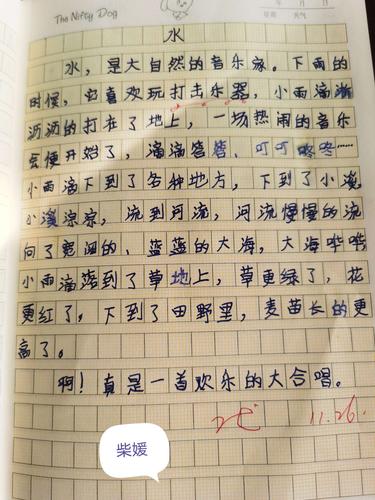 The Nifty Dog
年 月 日
星期 天气
水
水，是大自然的音乐家。下雨的
时候，它喜欢玩打击乐器，小雨滴淅
沥沥的打在了地上，一场热闹的音乐
会便开始了，滴滴答答、叮叮咚咚……
小雨滴下到了各种地方，下到了小溪，
小溪淙淙，流到河流，河流慢慢的流
向了宽阔的、蓝蓝的大海，大海哗哗，
小雨滴落到了草地上，草更绿了，花
更红了。下到了田野里，麦苗长的更
高了。
啊！真是一首欢乐的大合唱。
11.26.
柴媛